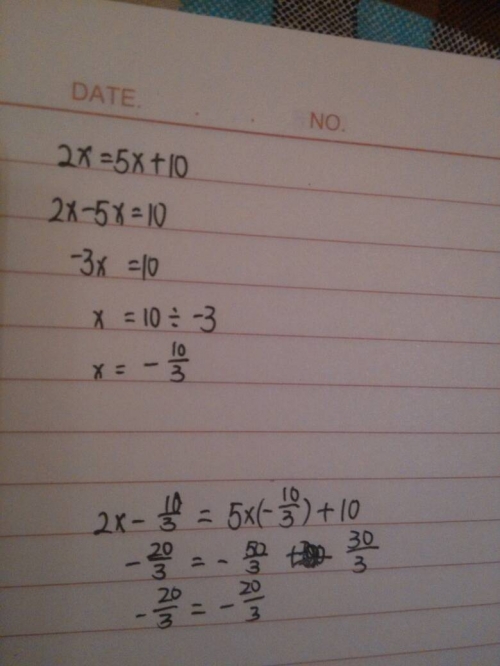 DATE.
NO.
2x=5x+10
2x-5x=10
-3x =10
x = 10 ÷ -3
x = - 10/3
2x - 10/3 = 5x(-10/3) + 10
- 20/3 = - 50/3 + 30/3
- 20/3 = - 20/3